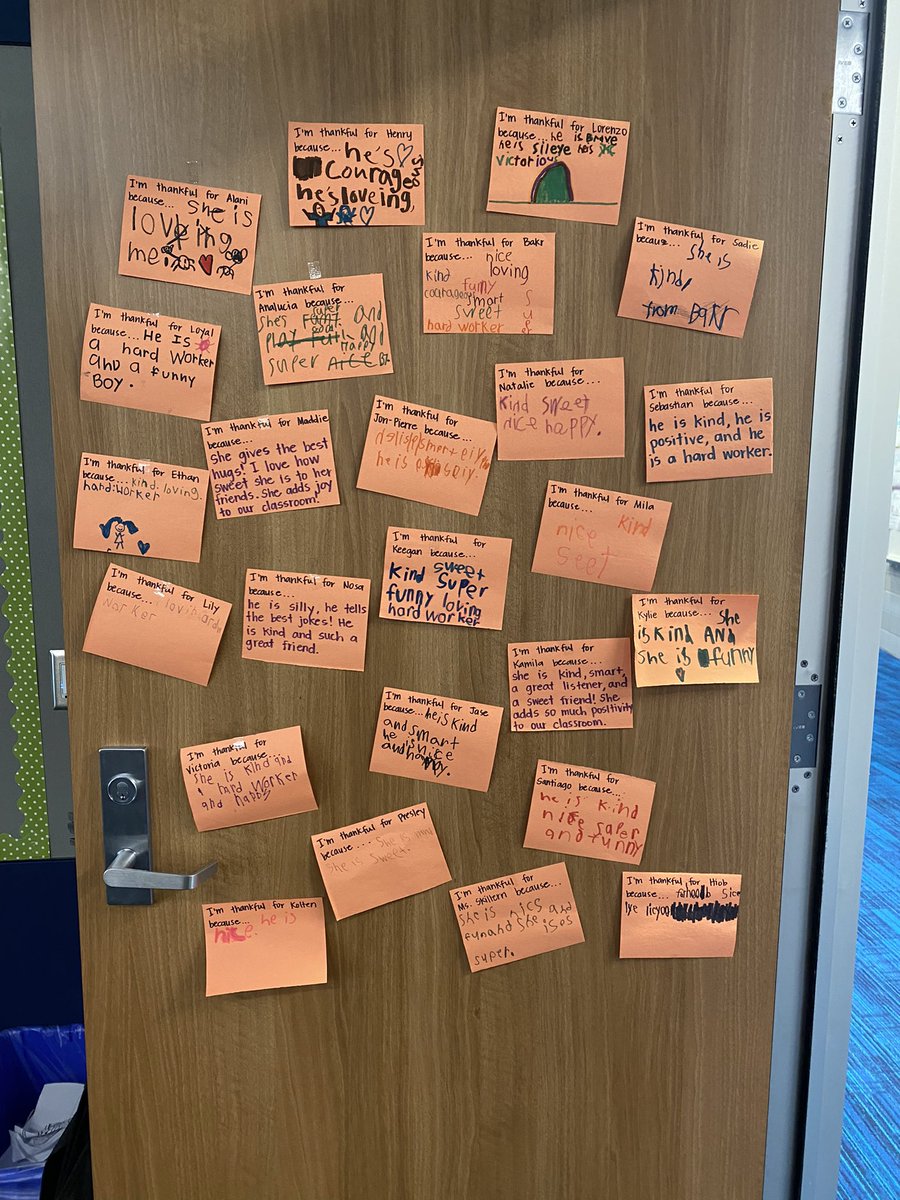 I'm thankful for Henry
because... he's
Courageous
he's loveing,
I'm thankful for Lorenzo
because... he is Brave
he is sileye he is
victorious
I'm thankful for Alani
because... She is
loveing
me
I'm thankful for Bakr
because... nice
kind loving
funny
courageous smart
sweet
hard worker
I'm thankful for Sadie
because... She is
kind,
from Bakr
I'm thankful for
Analucia because...
super
She's and
and
Happy
super nice
I'm thankful for Loyal
because... He Is
a hard Worker
and a funny
Boy.
I'm thankful for
Natalie because...
Kind sweet
nice happy.
I'm thankful for
Sebastian because...
he is kind, he is
positive, and he
is a hard worker.
I'm thankful for Maddie
because...
She gives the best
hugs! I love how
sweet she is to her
friends. She adds joy
to our classroom!
I'm thankful for
Jon-Pierre because...
he is
I'm thankful for Ethan
because... kind. loving.
hard:worker
I'm thankful for Mila
because...
nice kind
seet
I'm thankful for
Keegan because...
sweet
Kind Super
funny loving
hard worker
I'm thankful for Lily
because...
worker
I'm thankful for Nosa
because...
he is silly, he tells
the best jokes! He
is kind and such a
great friend.
I'm thankful for
Kylie because... She
is kind AND
She is funny
I'm thankful for
Kamila because...
she is kind, smart,
a great listener, and
a sweet friend! She
adds so much positivity
to our classroom.
I'm thankful for Jase
because... he is Kind
and smart
he is nice
and happy.
I'm thankful for
Victoria because...
She is kind and
a hard Worker
and happy
I'm thankful for
Santiago because...
he is kind
nice saper
and funny
I'm thankful for Presley
because... She is kind
She is sweet.
I'm thankful for
Ms. Skillern because...
She is nice and
fun and she is es
super.
I'm thankful for Hiob
because...
I'm thankful for Kolten
because... he is
nice.